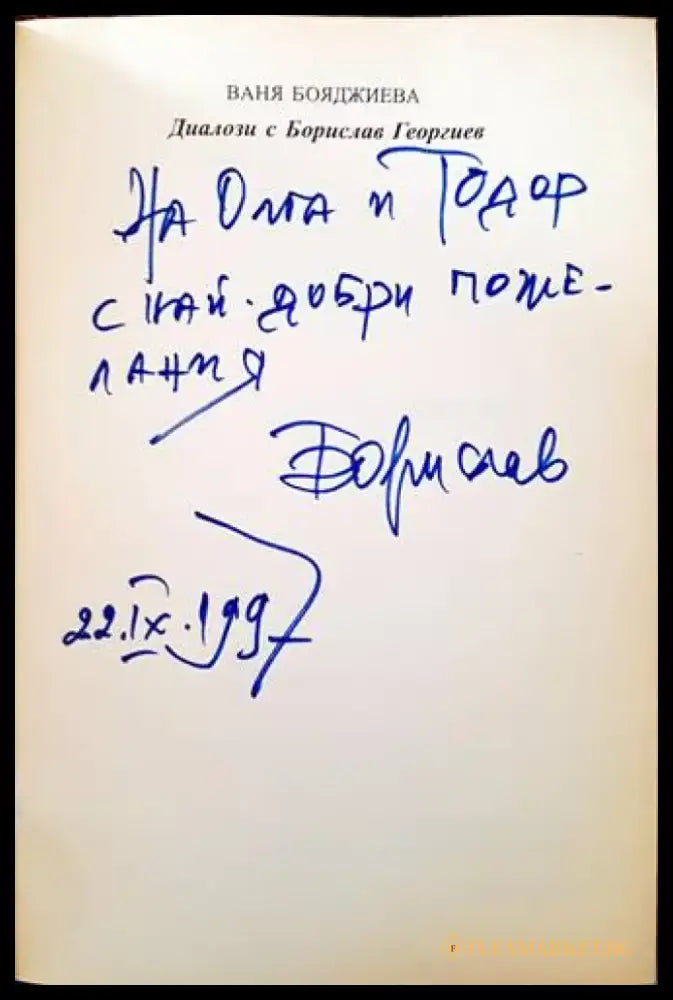 ВАНЯ БОЯДЖИЕВА
Диалози с Борислав Георгиев
На Олга и Тодор
с най-добри поже-
лания
Борислав
22.IX.1997
FLEAMARKET.BG